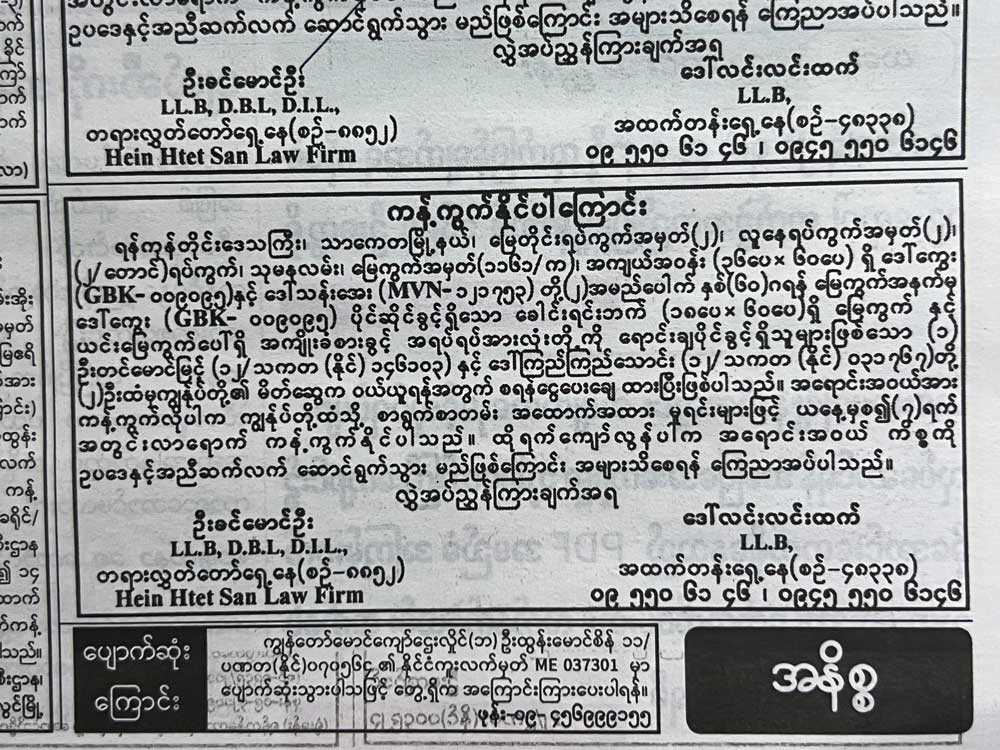 ဥပဒေနှင့်အညီဆက်လက် ဆောင်ရွက်သွား မည်ဖြစ်ကြောင်း အများသိစေရန် ကြေညာအပ်ပါသည်။
လွှဲအပ်ညွှန်ကြားချက်အရ
ဦးခင်မောင်ဦး
LL.B, D.B.L, D.I.L.,
တရားလွှတ်တော်ရှေ့နေ(စဉ်-၈၈၅၂)
Hein Htet San Law Firm
ဒေါ်လင်းလင်းထက်
LL.B,
အထက်တန်းရှေ့နေ(စဉ်-၄၈၃၃၈)
၀၉ ၅၅၀ ၆၁ ၄၆ ၊ ၀၉၄၅ ၅၅၀ ၆၁၄၆
ကန့်ကွက်နိုင်ပါကြောင်း
ရန်ကုန်တိုင်းဒေသကြီး၊ သာကေတမြို့နယ်၊ မြေတိုင်းရပ်ကွက်အမှတ်(၂)၊ လူနေရပ်ကွက်အမှတ်(၂)၊
(၂/တောင်)ရပ်ကွက်၊ သုမနလမ်း၊ မြေကွက်အမှတ်(၁၁၆၁/က)၊ အကျယ်အဝန်း (၃၆ပေ× ၆၀ပေ) ရှိ ဒေါ်ကွေး
(GBK- ၀၀၉၀၉၅)နှင့် ဒေါ်သန်းအေး (MVN- ၁၂၁၇၅၃) တို့(၂)အမည်ပေါက် နှစ်(၆၀)ဂရန် မြေကွက်အနက်မှ
ဒေါ်ကွေး (GBK- ၀၀၉၀၉၅) ပိုင်ဆိုင်ခွင့်ရှိသော ခေါင်းရင်းဘက် (၁၈ပေ× ၆၀ပေ)ရှိ မြေကွက် နှင့်
ယင်းမြေကွက်ပေါ်ရှိ အကျိုးခံစားခွင့် အရပ်ရပ်အားလုံးတို့ကို ရောင်းချပိုင်ခွင့်ရှိသူများဖြစ်သော (၁)
ဦးတင်မောင်မြင့် (၁၂/သကတ (နိုင်) ၁၄၆၁၀၃) နှင့် ဒေါ်ကြည်ကြည်သောင်း (၁၂/သကတ (နိုင်) ၀၃၁၇၆၇)တို့
(၂)ဦးထံမှကျွန်ုပ်တို့၏ မိတ်ဆွေက ဝယ်ယူရန်အတွက် စရန်ငွေပေးချေ ထားပြီးဖြစ်ပါသည်။ အရောင်းအဝယ်အား
ကန့်ကွက်လိုပါက ကျွန်ုပ်တို့ထံသို့ စာရွက်စာတမ်း အထောက်အထား မူရင်းများဖြင့် ယနေ့မှစ၍(၇)ရက်
အတွင်းလာရောက် ကန့်ကွက်နိုင်ပါသည်။ ထိုရက်ကျော်လွန်ပါက အရောင်းအဝယ် ကိစ္စကို
ဥပဒေနှင့်အညီဆက်လက် ဆောင်ရွက်သွား မည်ဖြစ်ကြောင်း အများသိစေရန် ကြေညာအပ်ပါသည်။
လွှဲအပ်ညွှန်ကြားချက်အရ
ဦးခင်မောင်ဦး
LL.B, D.B.L, D.I.L.,
တရားလွှတ်တော်ရှေ့နေ(စဉ်-၈၈၅၂)
Hein Htet San Law Firm
ဒေါ်လင်းလင်းထက်
LL.B,
အထက်တန်းရှေ့နေ(စဉ်-၄၈၃၃၈)
၀၉ ၅၅၀ ၆၁ ၄၆ ၊ ၀၉၄၅ ၅၅၀ ၆၁၄၆
ပျောက်ဆုံး
ကြောင်း
ကျွန်တော်မောင်ကျော်ဌေးလှိုင်(ဘ)ဦးထွန်းမောင်စိန် ၁၁/
ပဏတ(နိုင်)၀၇၀၅၆၄ ၏ နိုင်ငံကူးလက်မှတ် ME 037301 မှာ
ပျောက်ဆုံးသွားပါသဖြင့် တွေ့ရှိက အကြောင်းကြားပေးပါရန်။
ဖုန်း-၀၉၇ ၄၅၆၉၉၉၁၅၅
အနိစ္စ